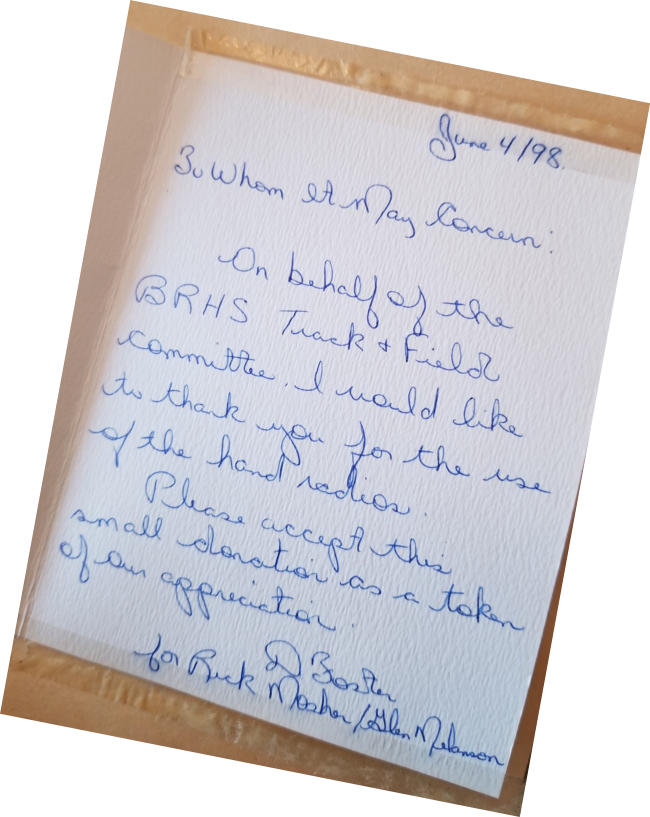 June 4/98.
To Whom It May Concern:
On behalf of the
BRHS Track + Field
committee. I would like
to thank you for the use
of the hand radios.
Please accept this
small donation as a token
of our appreciation.
D Boster
for Rick Mosher/Glen Melanson